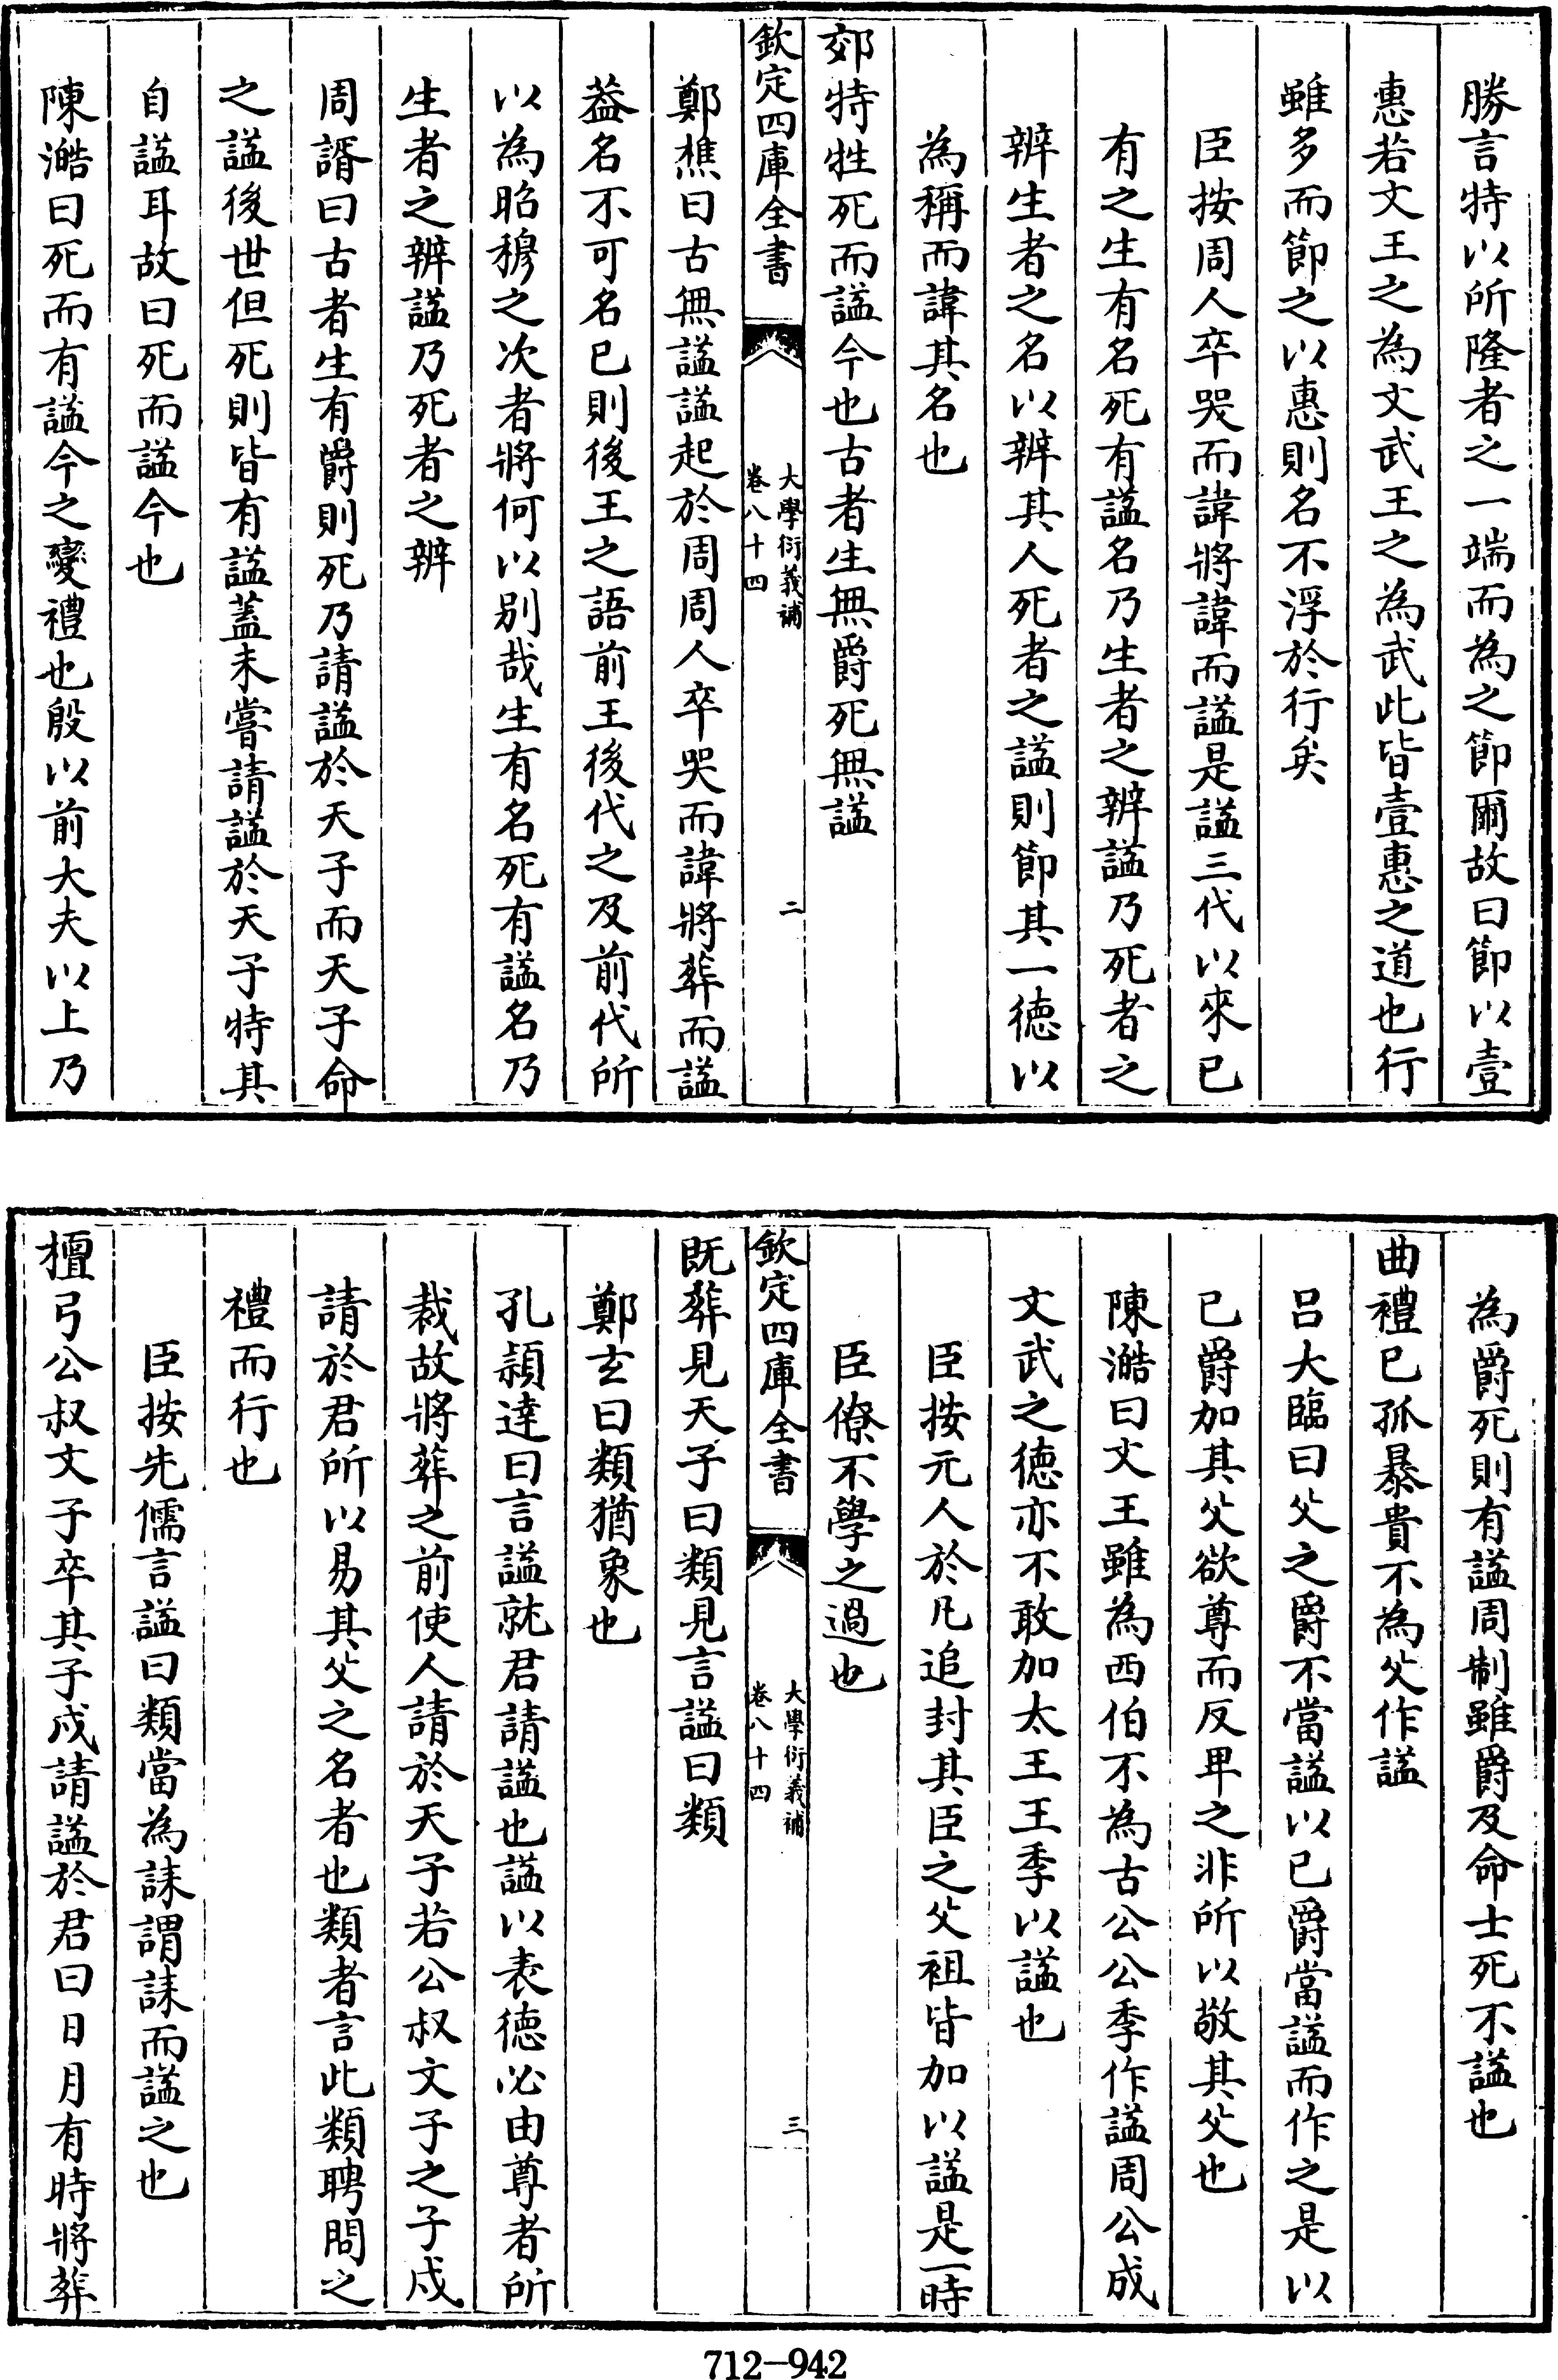 勝言特以所隆者之一端而為之節爾故曰節以壹
惠若文王之為文武王之為武此皆壹惠之道也行
雖多而節之以惠則名不浮於行矣
臣按周人卒哭而諱將諱而諡是諡三代以來已
有之生有名死有諡名乃生者之辨諡乃死者之
辨生者之名以辨其人死者之諡則節其一徳以
為稱而諱其名也
郊特牲死而諡今也古者生無爵死無諡
欽定四庫全書
大學衍義補
卷八十四
二
鄭樵曰古無諡諡起於周周人卒哭而諱將葬而諡
葢名不可名已則後王之語前王後代之及前代所
以為昭穆之次者將何以别哉生有名死有諡名乃
生者之辨諡乃死者之辨
周諝曰古者生有爵則死乃請諡於天子而天子命
之諡後世但死則皆有諡蓋未嘗請諡於天子特其
自諡耳故曰死而諡今也
陳澔曰死而有諡今之變禮也殷以前大夫以上乃
為爵死則有諡周制雖爵及命士死不諡也
曲禮已孤暴貴不為父作諡
吕大臨曰父之爵不當諡以已爵當諡而作之是以
已爵加其父欲尊而反卑之非所以敬其父也
陳澔曰文王雖為西伯不為古公公季作諡周公成
文武之徳亦不敢加太王王季以諡也
臣按元人於凡追封其臣之父祖皆加以諡是一時
臣僚不學之過也
欽定四庫全書
大學衍義補
卷八十四
三
既葬見天子曰類見言諡曰類
鄭玄曰類猶象也
孔頴達曰言諡就君請諡也諡以表徳必由尊者所
裁故將葬之前使人請於天子若公叔文子之子戍
請於君所以易其父之名者也類者言此類聘問之
禮而行也
臣按先儒言諡曰類當為誄謂誄而諡之也
檀弓公叔文子卒其子戍請諡於君曰日月有時將葬
712-942